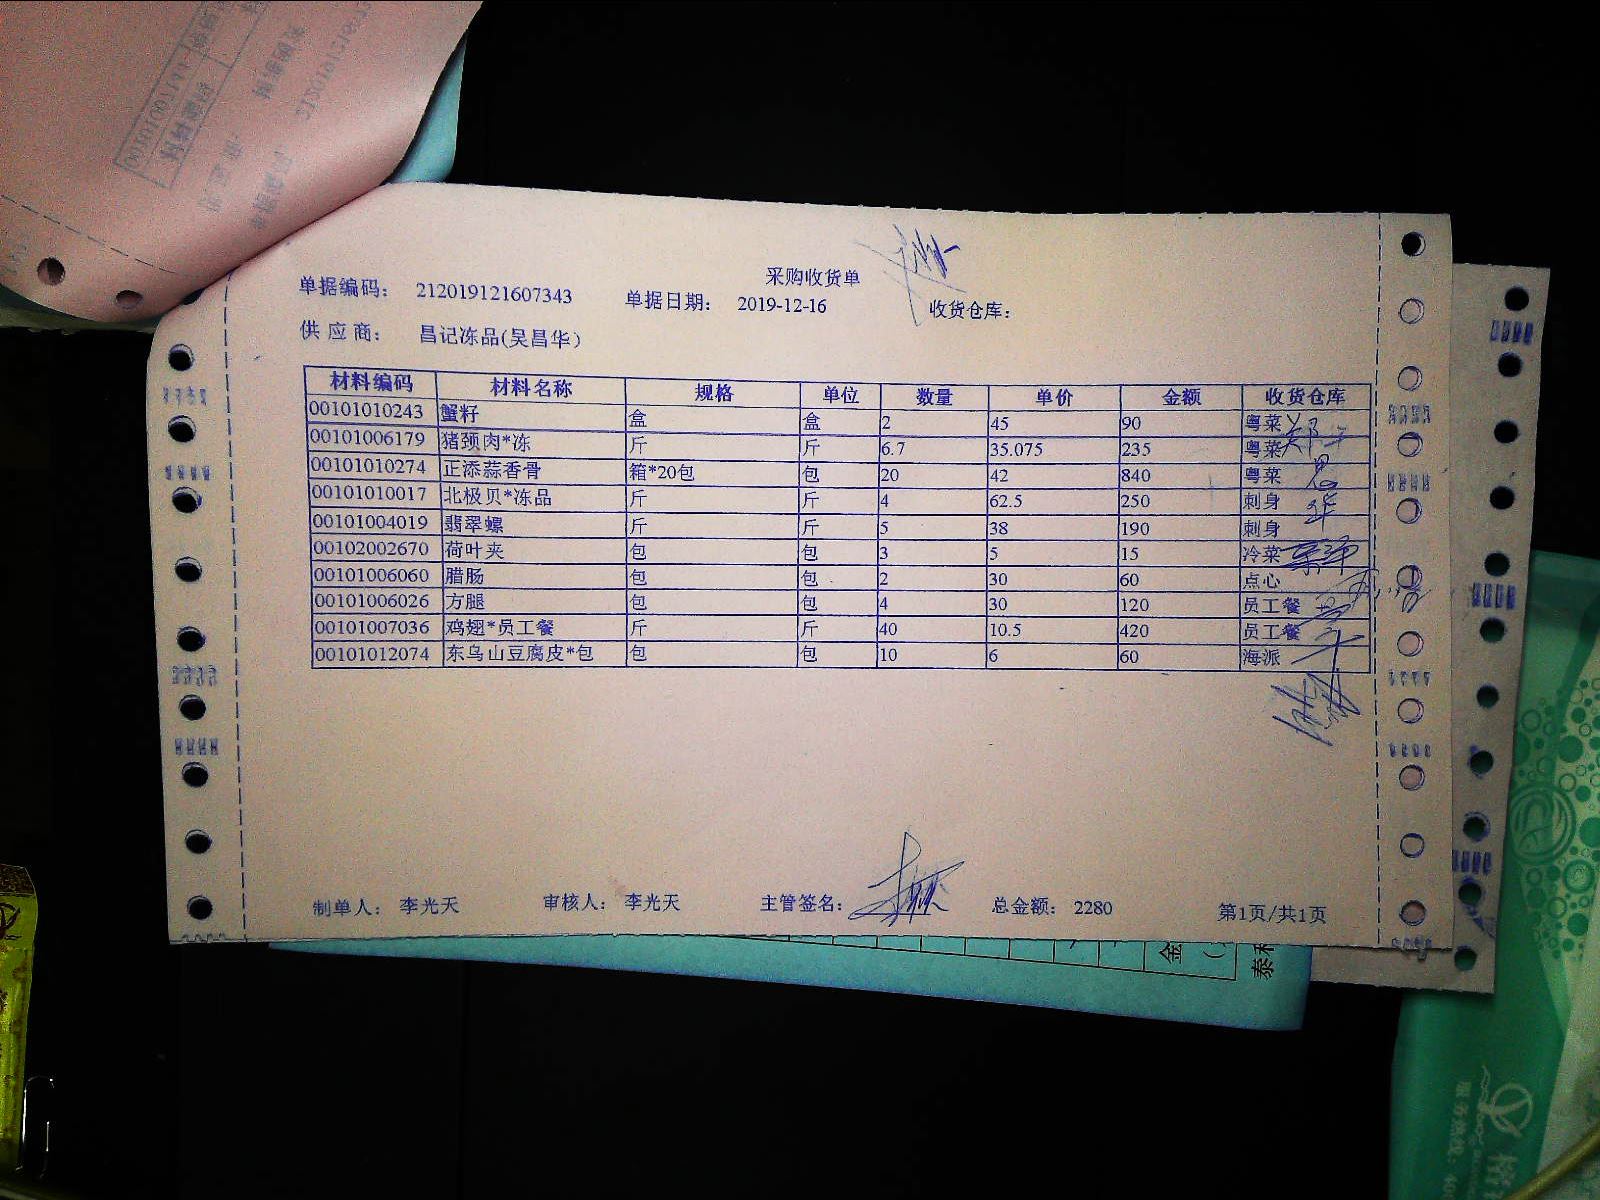 采购收货单
单据编码： 212019121607343 单据日期： 2019-12-16 收货仓库：
供 应 商： 昌记冻品(吴昌华）
材料编码 材料名称 规格 单位 数量 单价 金额 收货仓库
00101010243 蟹籽 盒 盒 2 45 90 粤菜
00101006179 猪颈肉*冻 斤 斤 6.7 35.075 235 粤菜
00101010274 正添蒜香骨 箱*20包 包 20 42 840 粤菜
00101010017 北极贝*冻品 斤 斤 4 62.5 250 刺身
00101004019 翡翠螺 斤 斤 5 38 190 刺身
00102002670 荷叶夹 包 包 3 5 15 冷菜
00101006060 腊肠 包 包 2 30 60 点心
00101006026 方腿 包 包 4 30 120 员工餐
00101007036 鸡翅*员工餐 斤 斤 40 10.5 420 员工餐
00101012074 东乌山豆腐皮*包 包 包 10 6 60 海派
制单人： 李光天 审核人： 李光天 主管签名： 总金额： 2280 第1页/共1页
金